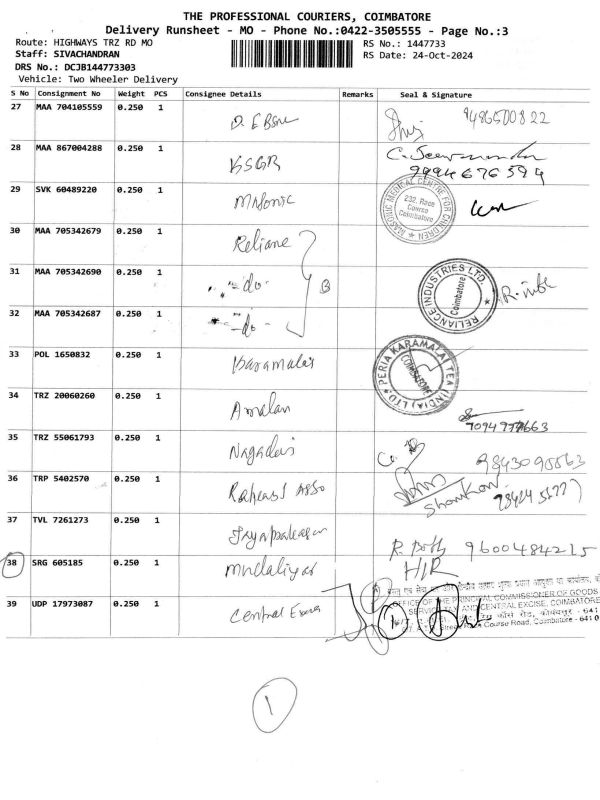 THE PROFESSIONAL COURIERS, COIMBATORE
Delivery Runsheet - MO - Phone No.:0422-3505555 - Page No.:3
Route: HIGHWAYS TRZ RD MO
RS No.: 1447733
Staff: SIVACHANDRAN
RS Date: 24-Oct-2024
DRS No.: DCJB144773303
Vehicle: Two Wheeler Delivery
S No Consignment No Weight PCS Consignee Details Remarks Seal & Signature
27 MAA 704105559 0.250 1 9486500822
28 MAA 867004288 0.250 1 KSGR 9994676594
29 SVK 60489220 0.250 1 Masonic
MASONIC MEDICAL CENTRE FOR CHILDREN
232, Race
Course
Coimbatore
30 MAA 705342679 0.250 1 Reliane
31 MAA 705342690 0.250 1 -do-
RELIANCE INDUSTRIES LTD.
Coimbatore
32 MAA 705342687 0.250 1 -do-
33 POL 1650832 0.250 1 Karamalai
PERIA KARAMALAI TEA (INDIA) LTD.
COIMBATORE
34 TRZ 20060260 0.250 1 Amalan
35 TRZ 55061793 0.250 1 Nagadevi
36 TRP 5402570 0.250 1 Asso Shankar
37 TVL 7261273 0.250 1 9600484215
38 SRG 605185 0.250 1 Mudaliyar
39 UDP 17973087 0.250 1 Central
OFFICE OF THE PRINCIPAL COMMISSIONER OF GOODS
SERVICE TAX AND CENTRAL EXCISE, COIMBATORE
Race Course Road, Coimbatore - 6410
1